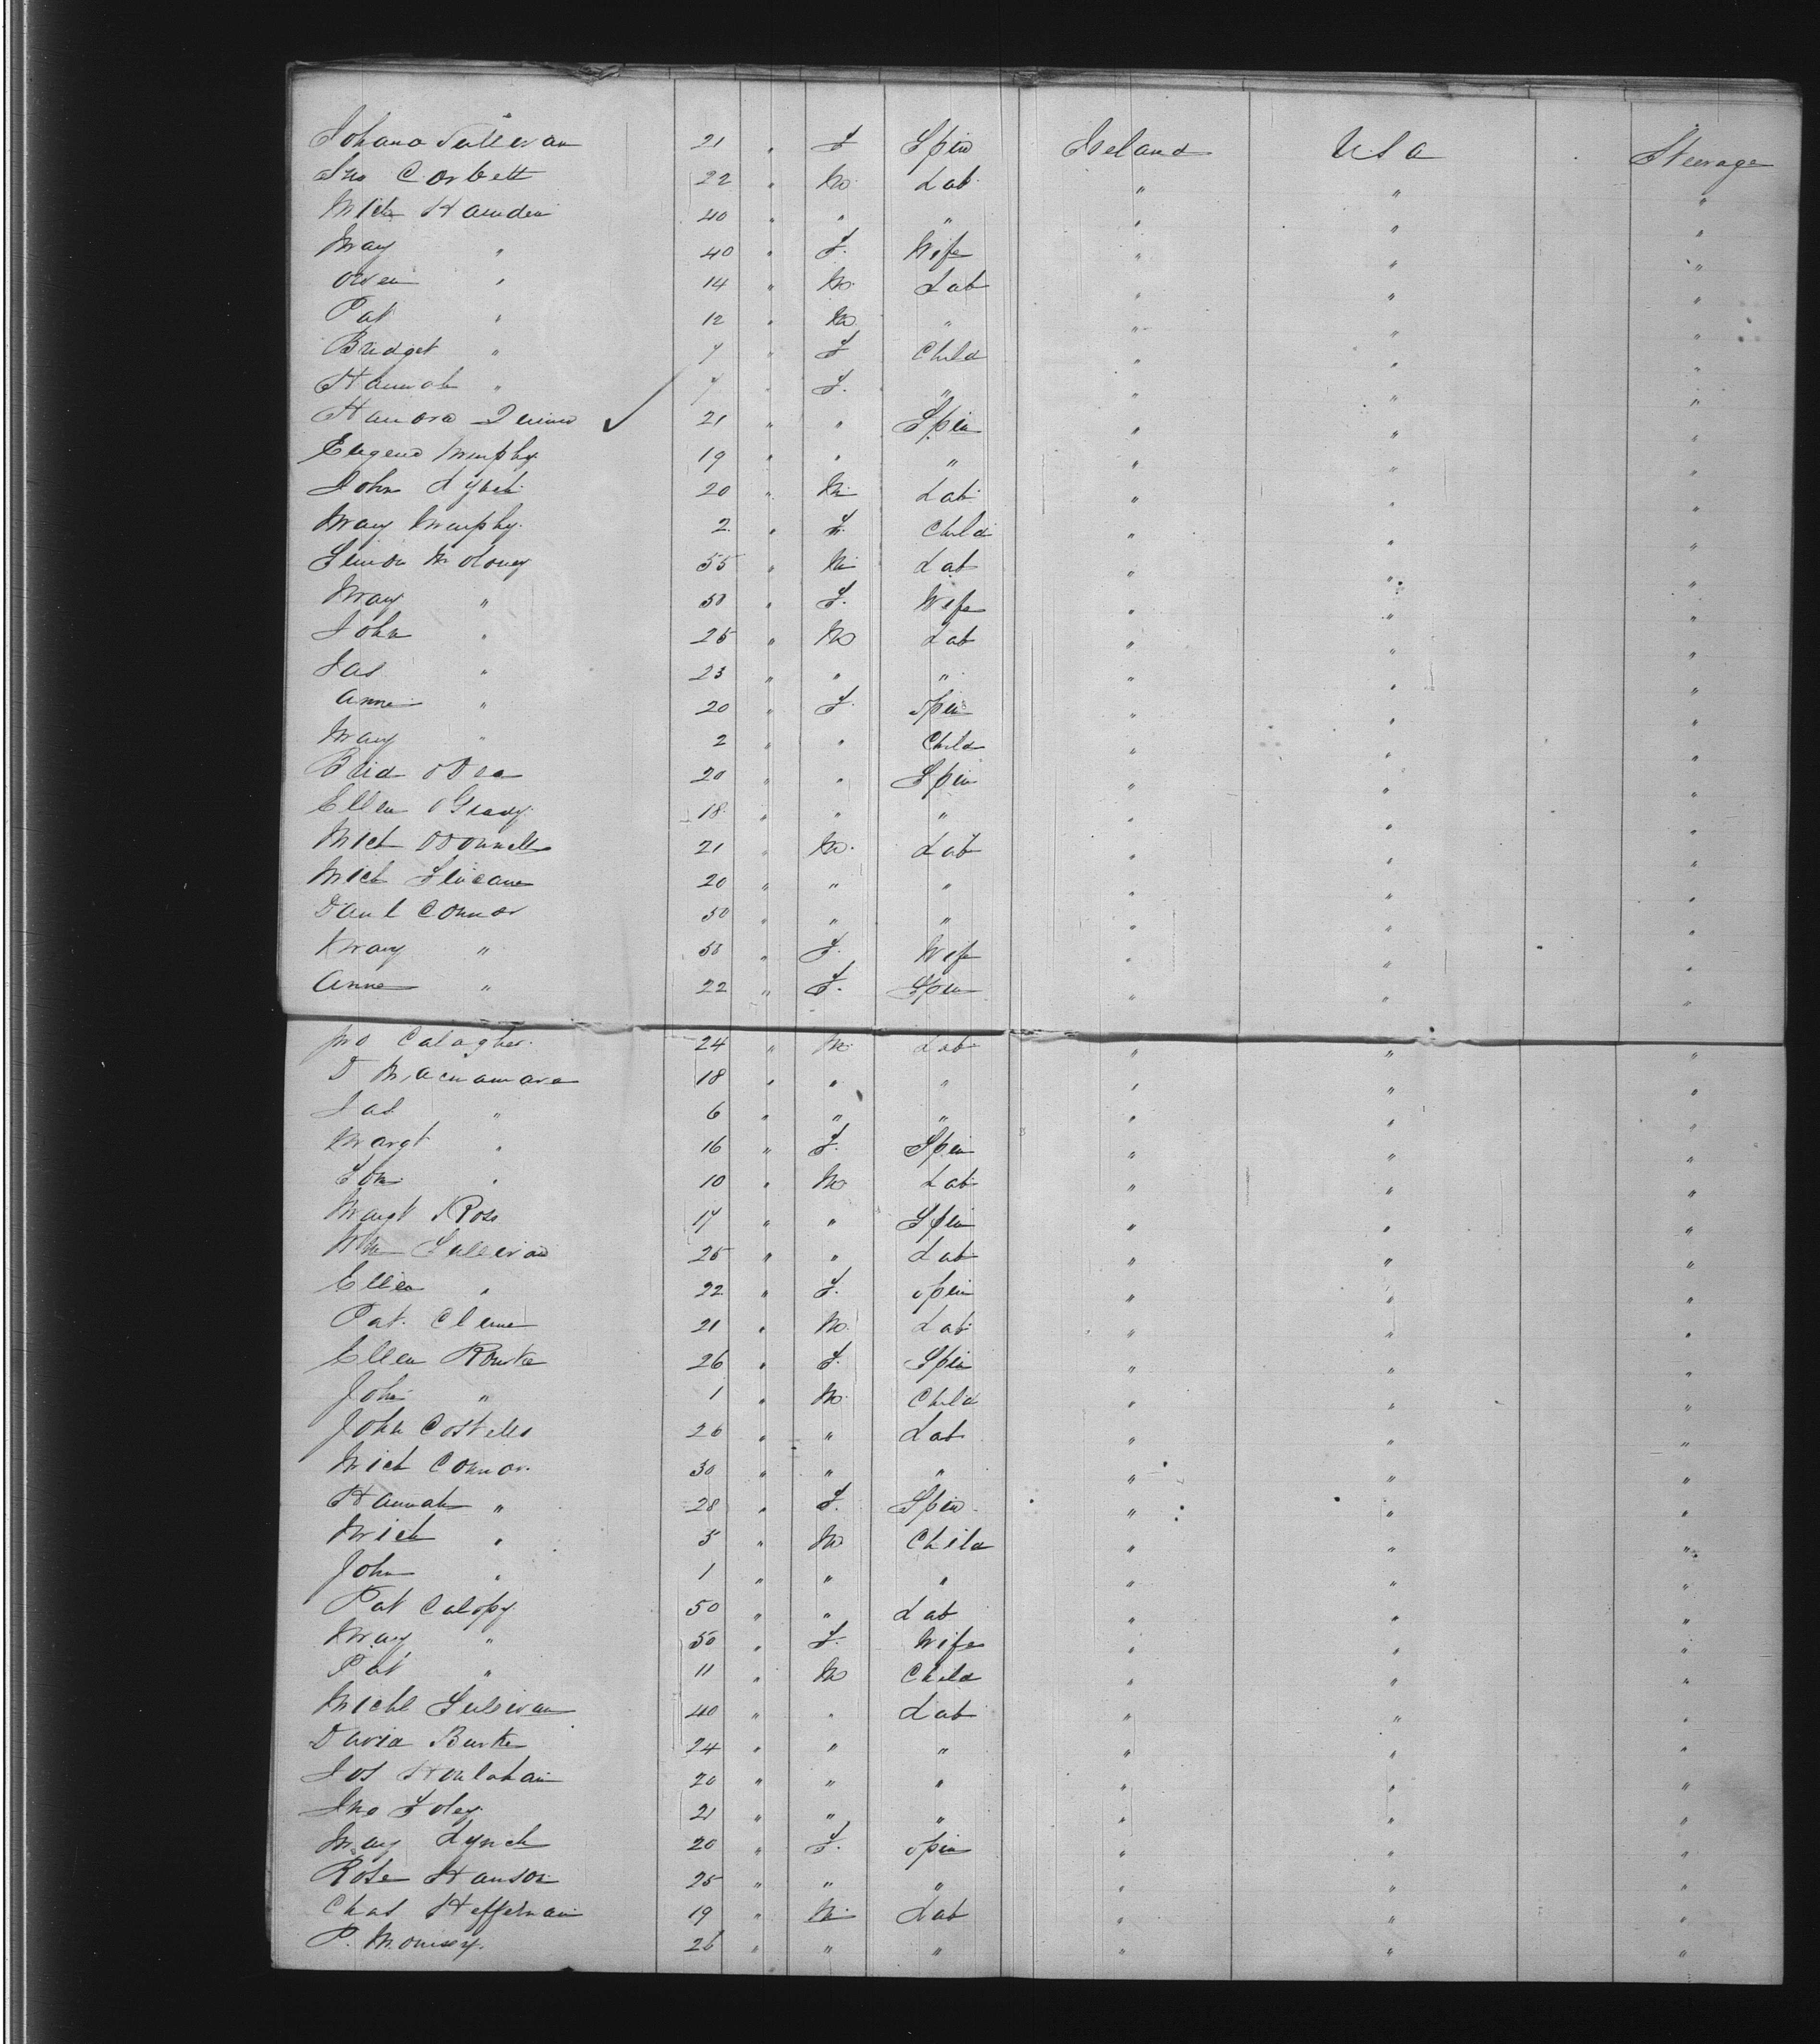 Johana Sullivan 21 " F Spin Ireland U S A Steerage
Jno Corbett 22 " M Lab " " "
Mich 40 " " " " " "
Mary " 40 " F. Wife " " "
Owen " 14 " M Lab " " "
Pat " 12 " M " " " "
Bridget " 7 " F Child " " "
Hannah " 7 " F. " " " "
Hanora Quinn ✓ 21 " " Spin " " "
Eugene Murphy 19 " " " " " "
John Lynch 20 " M Lab " " "
Mary Murphy 2 " F. Child " " "
Simon Moloney 55 " M Lab " " "
Mary " 50 " F. Wife " " "
John " 25 " M Lab " " "
Jas " 23 " " " " " "
Anne " 20 " F Spin " " "
Mary " 2 " " Child " " "
Brid O Dea 20 " " Spin " " "
Ellen O Grady 18 " " " " " "
Mich O Donnell 21 " M Lab " " "
Mich 20 " " " " " "
Danl Connor 50 " " " " " "
Mary " 50 " F. Wife " " "
Anne " 22 " F. Spin " " "
Jno Calagher 24 " M Lab " " "
D Macnamara 18 " " " " " "
Jas " 6 " " " " " "
Margt " 16 " F. Spin " " "
Tom " 10 " M Lab " " "
Margt Ross 17 " " Spin " " "
Wm Sullivan 25 " " Lab " " "
Ellen " 22 " F. Spin " " "
Pat. 21 " M Lab " " "
Ellen Rourke 26 " F. Spin " " "
John " 1 " M Child " " "
John Costello 26 " " Lab " " "
Mich Connor 30 " " " " " "
Hannah " 28 " F. Spin " " "
Mich " 3 " M Child " " "
John " 1 " " " " " "
Pat Calopy 50 " " Lab " " "
Mary " 50 " F. Wife " " "
Pat " 11 " M Child " " "
Michl Sullivan 40 " " Lab " " "
David Burke 24 " " " " " "
Jos Houlahan 20 " " " " " "
Jno Foley 21 " " " " " "
Mary Lynch 20 " F. Spin " " "
Rose Hanson 25 " " " " " "
Chas Heffernan 19 " M Lab " " "
P. 26 " " " " " "